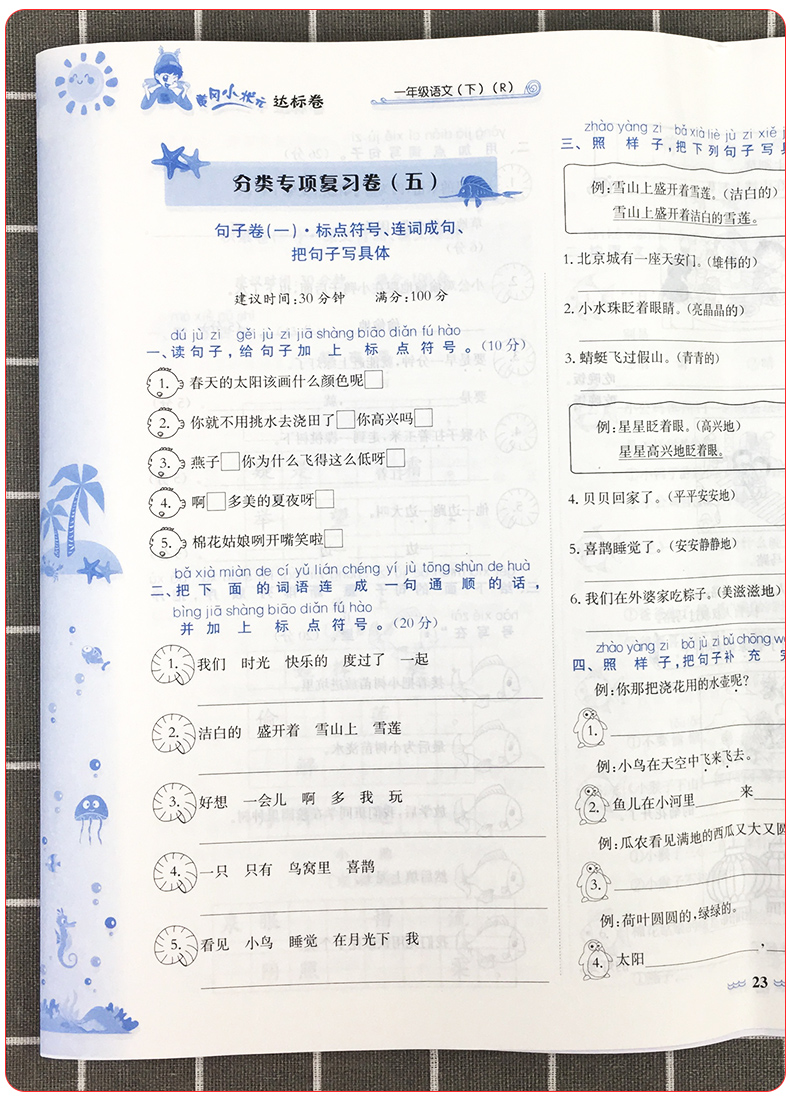 黄冈小状元 达标卷
一年级语文(下)(R)
分类专项复习卷(五)
句子卷(一)·标点符号、连词成句、
把句子写具体
建议时间:30分钟 满分:100分
dú jù zi gěi jù zi jiā shàng biāo diǎn fú hào
一、读句子,给句子加上标点符号。(10分)
1. 春天的太阳该画什么颜色呢□
2. 你就不用挑水去浇田了□你高兴吗□
3. 燕子□你为什么飞得这么低呀□
4. 啊□多美的夏夜呀□
5. 棉花姑娘咧开嘴笑啦□
bǎ xià miàn de cí yǔ lián chéng yí jù tōng shùn de huà
二、把下面的词语连成一句通顺的话,
bìng jiā shàng biāo diǎn fú hào
并加上标点符号。(20分)
1. 我们 时光 快乐的 度过了 一起
2. 洁白的 盛开着 雪山上 雪莲
3. 好想 一会儿 啊 多 我 玩
4. 一只 只有 鸟窝里 喜鹊
5. 看见 小鸟 睡觉 在月光下 我
zhào yàng zi bǎ xià liè jù zi xiě j
三、照样子,把下列句子写具
例:雪山上盛开着雪莲。(洁白的)
雪山上盛开着洁白的雪莲。
1. 北京城有一座天安门。(雄伟的)
2. 小水珠眨着眼睛。(亮晶晶的)
3. 蜻蜓飞过假山。(青青的)
例:星星眨着眼。(高兴地)
星星高兴地眨着眼。
4. 贝贝回家了。(平平安安地)
5. 喜鹊睡觉了。(安安静静地)
6. 我们在外婆家吃粽子。(美滋滋地)
zhào yàng zi bǎ jù zi bǔ chōng w
四、照样子,把句子补充完
例:你那把浇花用的水壶呢?
1.
例:小鸟在天空中飞来飞去。
2. 鱼儿在小河里______来
例:瓜农看见满地的西瓜又大又圆
3.
例:荷叶圆圆的,绿绿的。
4. 太阳
23